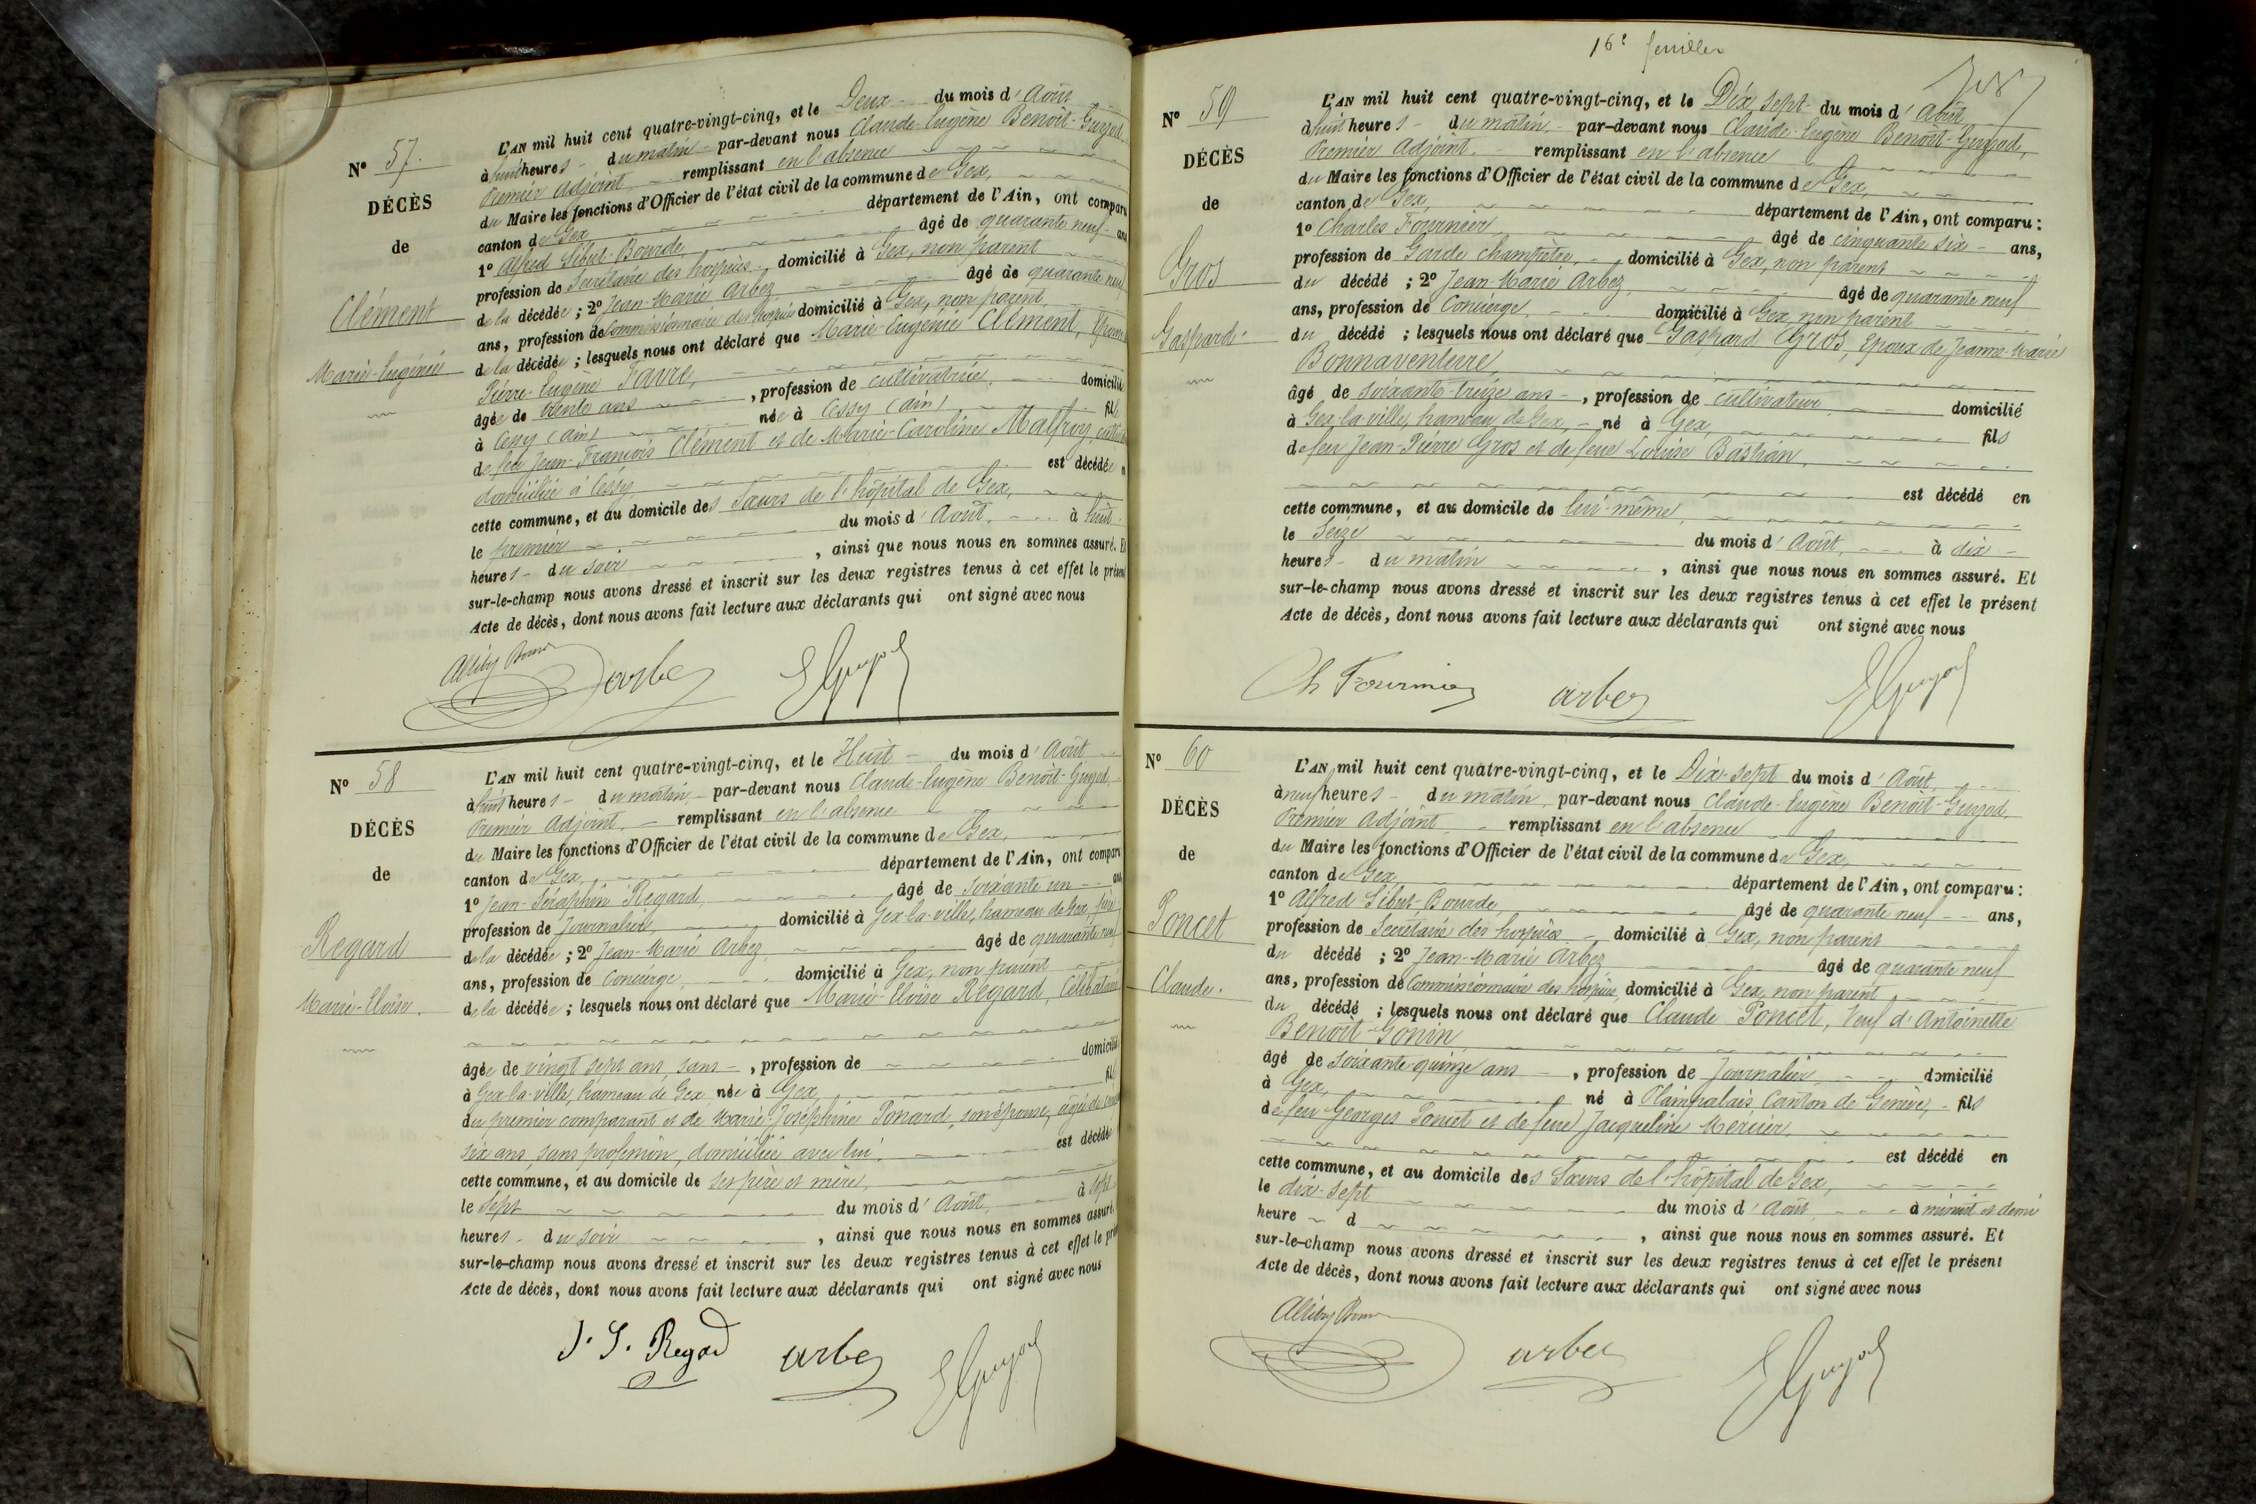 Nº 57.
DÉCÈS
de
Clément
Marie-Eugénie
L'AN mil huit cent quatre-vingt-cinq, et le Deux du mois d'Août
à huit heures du matin par-devant nous Claude-Eugène Benoit-Guyod,
Premier Adjoint remplissant en l'absence
du Maire les fonctions d'Officier de l'état civil de la commune de Gex,
canton de Gex département de l'Ain, ont comparu
1º Alfred Sibut-Bourde, âgé de quarante neuf ans
profession de Secrétaire des hospices domicilié à Gex, non parent
de la décédée ; 2º Jean-Marie Arbez âgé de quarante neuf
ans, profession de Commissionnaire des hospices domicilié à Gex, non parent
de la décédée ; lesquels nous ont déclaré que Marie-Eugénie Clément,
Pierre-Eugène Favre,
âgée de trente ans , profession de cultivatrice, domicilié
à Cessy (Ain) née à Cessy (Ain) fil
de feu Jean-François Clément et de Marie-Caroline Malfroy,
domiciliée à Cessy est décédée
cette commune, et au domicile des Sœurs de l'hôpital de Gex,
le premier du mois d'Août à huit
heures du soir , ainsi que nous nous en sommes assuré. Et
sur-le-champ nous avons dressé et inscrit sur les deux registres tenus à cet effet le présent
Acte de décès, dont nous avons fait lecture aux déclarants qui ont signé avec nous
arbez EGuyod
Nº 58
DÉCÈS
de
Regard
Marie-Eloïse.
L'AN mil huit cent quatre-vingt-cinq, et le Huit du mois d'Août
à huit heures du matin par-devant nous Claude-Eugène Benoit-Guyod,
Premier Adjoint remplissant en l'absence
du Maire les fonctions d'Officier de l'état civil de la commune de Gex,
canton de Gex département de l'Ain, ont comparu
1º Jean-Séraphin Regard, âgé de soixante un ans
profession de Journalier, domicilié à Gex-la-ville, hameau de Gex, père
de la décédée ; 2º Jean-Marie Arbez âgé de quarante neuf
ans, profession de Concierge, domicilié à Gex, non parent
de la décédée ; lesquels nous ont déclaré que Marie-Eloïse Regard, Célibataire
âgée de vingt sept ans, sans , profession de domicilié
à Gex-la-ville, hameau de Gex née à Gex, fil
du premier comparant et de Marie-Joséphine Ponard, son épouse, âgée de
six ans, sans profession, domiciliée avec lui. est décédée
cette commune, et au domicile de ses père et mère,
le Sept du mois d'Août, à sept
heures du soir , ainsi que nous nous en sommes assuré.
sur-le-champ nous avons dressé et inscrit sur les deux registres tenus à cet effet le pré
Acte de décès, dont nous avons fait lecture aux déclarants qui ont signé avec nous
J. S. Regard arbez EGuyod
16e feuillet
Nº 59
DÉCÈS
de
Gros
Gaspard.
L'AN mil huit cent quatre-vingt-cinq, et le Dix sept du mois d'Août
à huit heures du matin, par-devant nous Claude-Eugène Benoit-Guyod,
Premier Adjoint, remplissant en l'absence
du Maire les fonctions d'Officier de l'état civil de la commune de Gex,
canton de Gex, département de l'Ain, ont comparu :
1º Charles Fournier âgé de cinquante six ans,
profession de Garde champêtre, domicilié à Gex, non parent
du décédé ; 2º Jean-Marie Arbez, âgé de quarante neuf
ans, profession de Concierge, domicilié à Gex, non parent
du décédé ; lesquels nous ont déclaré que Gaspard Gros, Epoux de Jeanne-Marie
Bonnaventure,
âgé de soixante-treize ans , profession de cultivateur domicilié
à Gex-la-ville, hameau de Gex, né à Gex, fils
de feu Jean-Pierre Gros et de feue Louise Bastian,
est décédé en
cette commune, et au domicile de lui-même,
le Seize du mois d'Août, à dix
heures du matin , ainsi que nous nous en sommes assuré. Et
sur-le-champ nous avons dressé et inscrit sur les deux registres tenus à cet effet le présent
Acte de décès, dont nous avons fait lecture aux déclarants qui ont signé avec nous
Ch Fournier arbez EGuyod
Nº 60
DÉCÈS
de
Poncet
Claude.
L'AN mil huit cent quatre-vingt-cinq, et le Dix-sept du mois d'Août,
à neuf heures du matin, par-devant nous Claude-Eugène Benoit-Guyod,
Premier Adjoint remplissant en l'absence
du Maire les fonctions d'Officier de l'état civil de la commune de Gex,
canton de Gex département de l'Ain, ont comparu :
1º Alfred Sibut-Bourde, âgé de quarante neuf ans,
profession de Secrétaire des hospices domicilié à Gex, non parent
du décédé ; 2º Jean-Marie Arbez âgé de quarante neuf
ans, profession de Commissionnaire des hospices, domicilié à Gex, non parent
du décédé ; lesquels nous ont déclaré que Claude Poncet, Veuf d'Antoinette
Benoit-Gonin
âgé de soixante quinze ans , profession de Journalier domicilié
à Gex, né à Plainpalais Canton de Genève, fils
de feu Georges Poncet et de feue Jacqueline Mercier,
est décédé en
cette commune, et au domicile des Sœurs de l'hôpital de Gex,
le dix-sept du mois d'Août, à minuit et demi
heure d , ainsi que nous nous en sommes assuré. Et
sur-le-champ nous avons dressé et inscrit sur les deux registres tenus à cet effet le présent
Acte de décès, dont nous avons fait lecture aux déclarants qui ont signé avec nous
arbez EGuyod